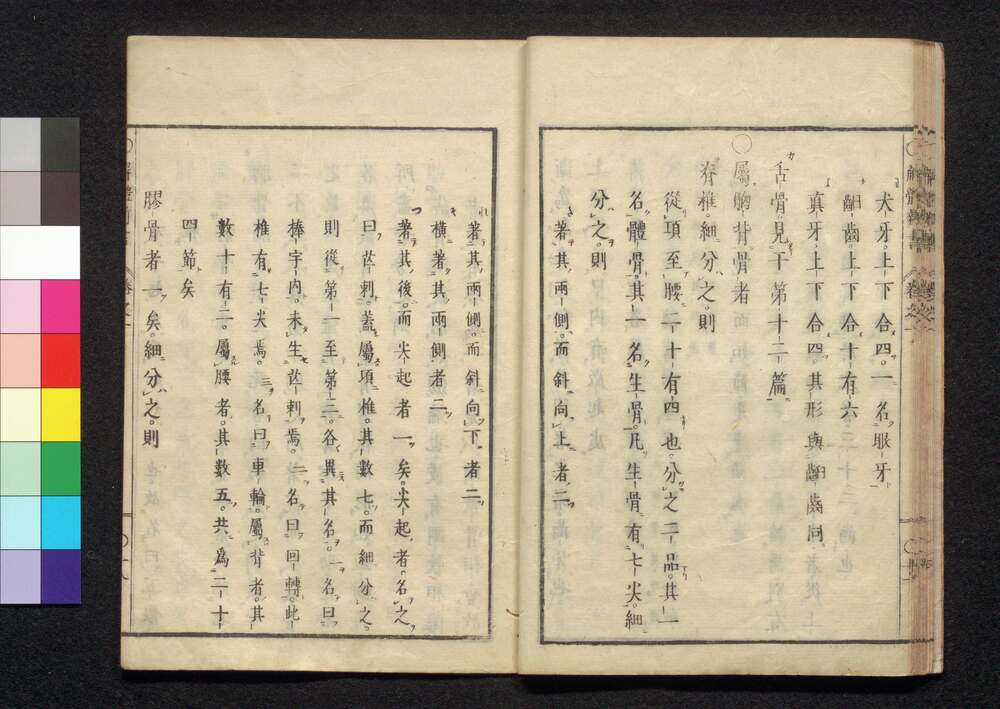 犬牙。上下合四。一名眼牙
齟齒。上下合十有六。
眞牙上下合四。其形與齟齒同
舌骨。見于第十二篇
○屬胸背骨者
脊椎。細分之則
從項至腰。二十有四也。分之二品。其一
名體骨。其一名生骨。凡生骨有七尖。細
分之。則
著其兩側。而斜向上者二。
著其兩側。而斜向下者二
橫著其兩側者二。
著其後。而尖起者一矣。尖起者。名之
曰芒刺。蓋屬項椎。其數七。而細分之。
則從第一至第二。各異其名。一名曰
棒宇。內未生芒刺焉。二名曰回轉。此
椎有七尖焉。三名曰車輪。屬背者。其
數十有二。屬腰者。其數五。共爲二十
四節矣
膠骨者一矣。細分之。則